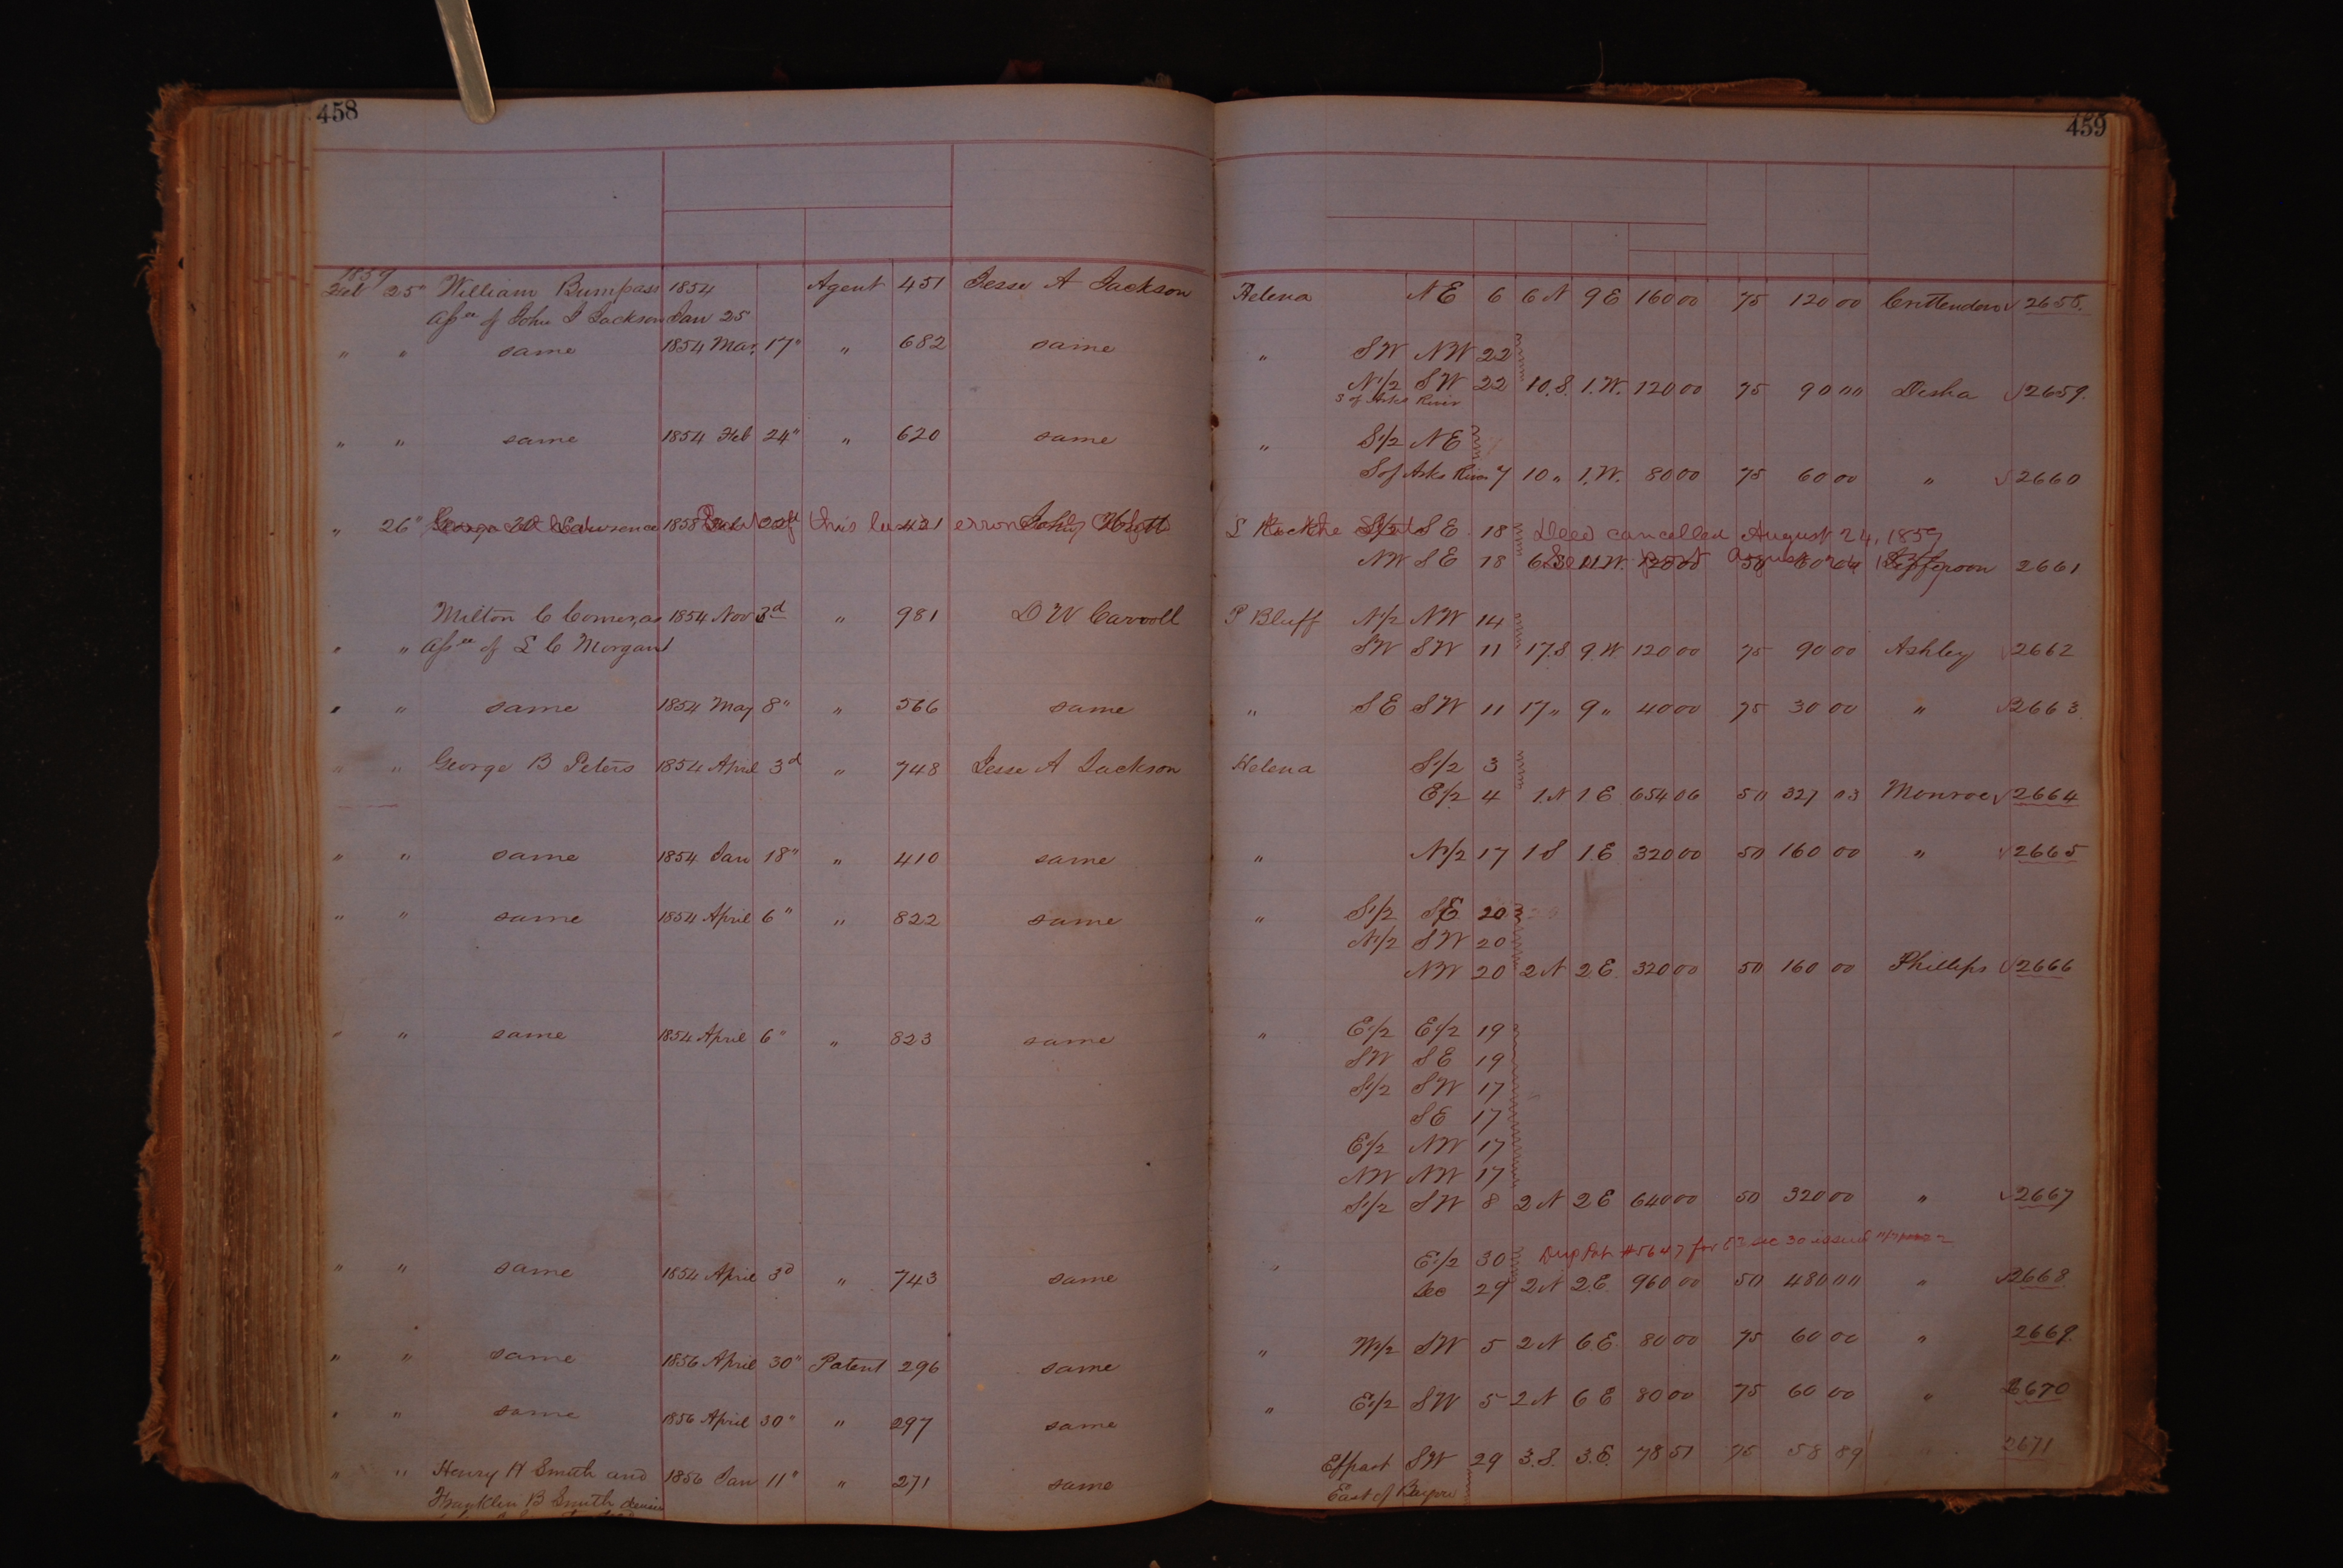 458
459
1859
Feb 25" William Bumpass 1854 Agent 451 Jesse A Jackson Helena NE 6 6N 9E 160 00 75 120 00 Crittenden √ 2658.
Assee of John J Jackson Jan 25
" " same 1854 Mar. 17" " 682 same " SW NW 22
N1/2 SW 22 10.S. 1.W. 120 00 75 90 00 Desha √2659.
S of Arks River
" " same 1854 Feb 24" " 620 same " S1/2 NE
S of Arks River 7 10 " 1.W. 80 00 75 60 00 " √2660
" 26" George Lawrence 1858 this 421 erroneously John L Rock S1/2 SE 18 Deed cancelled August 24, 1859
NW SE 18 6 S 11 W. 120 00 50 60 00 Jefferson 2661
Milton C Comer, as 1854 Nov 3d " 981 D W Carroll P Bluff N1/2 NW 14
" " Assee of L C Morgan SW SW 11 17.S 9.W. 120 00 75 90 00 Ashley √2662
" " same 1854 May 8" " 566 same " SE SW 11 17 " 9 " 40 00 75 30 00 " √2663
" " George B Peters 1854 April 3d " 748 Jesse A Jackson Helena S1/2 3
E1/2 4 1.N 1 E 654 06 50 327 03 Monroe √2664
" " same 1854 Jan 18" " 410 same " N1/2 17 1 S 1.E 320 00 50 160 00 " √2665
" " same 1854 April 6" " 822 same " S1/2 SE 20
N1/2 SW 20
NW 20 2 N 2 E. 320 00 50 160 00 Phillips √2666
" " same 1854 April 6" " 823 same " E1/2 E1/2 19
SW SE 19
S1/2 SW 17
SE 17
E1/2 NW 17
NW NW 17
S1/2 SW 8 2 N 2 E 640 00 50 320 00 " √2667
" E1/2 30 Dup Pat #5647 for E2 sec 30 issued
" " same 1854 April 3d " 743 same Sec 29 2 N 2.E. 960 00 50 480 00 " √2668.
" " same 1856 April 30" Patent 296 same " W1/2 SW 5 2 N 6.E. 80 00 75 60 00 " 2669.
" " same 1856 April 30" " 297 same " E1/2 SW 5 2 N 6 E 80 00 75 60 00 " 2670
" " Henry H Smith and 1856 Jan 11" " 271 same E fract SW 29 3.S. 3.E. 78 51 75 58 89 2671
Franklin B Smith East of Bayou